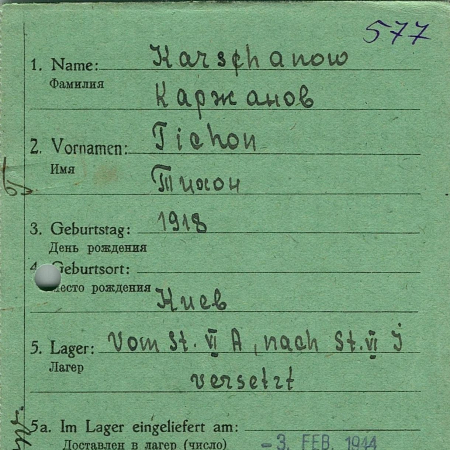 577
1. Name: Karschanow
Фамилия
Каржанов
2. Vornamen: Tichon
Имя
Тихон
3. Geburtstag: 1918
День рождения
4. Geburtsort:
место рождения
Киев
5. Lager: Vom St. VI A, nach St. VI J
Лагер
versetzt
5a. Im Lager eingeliefert am:
Доставлен в лагер (число) -3. FEB. 1944